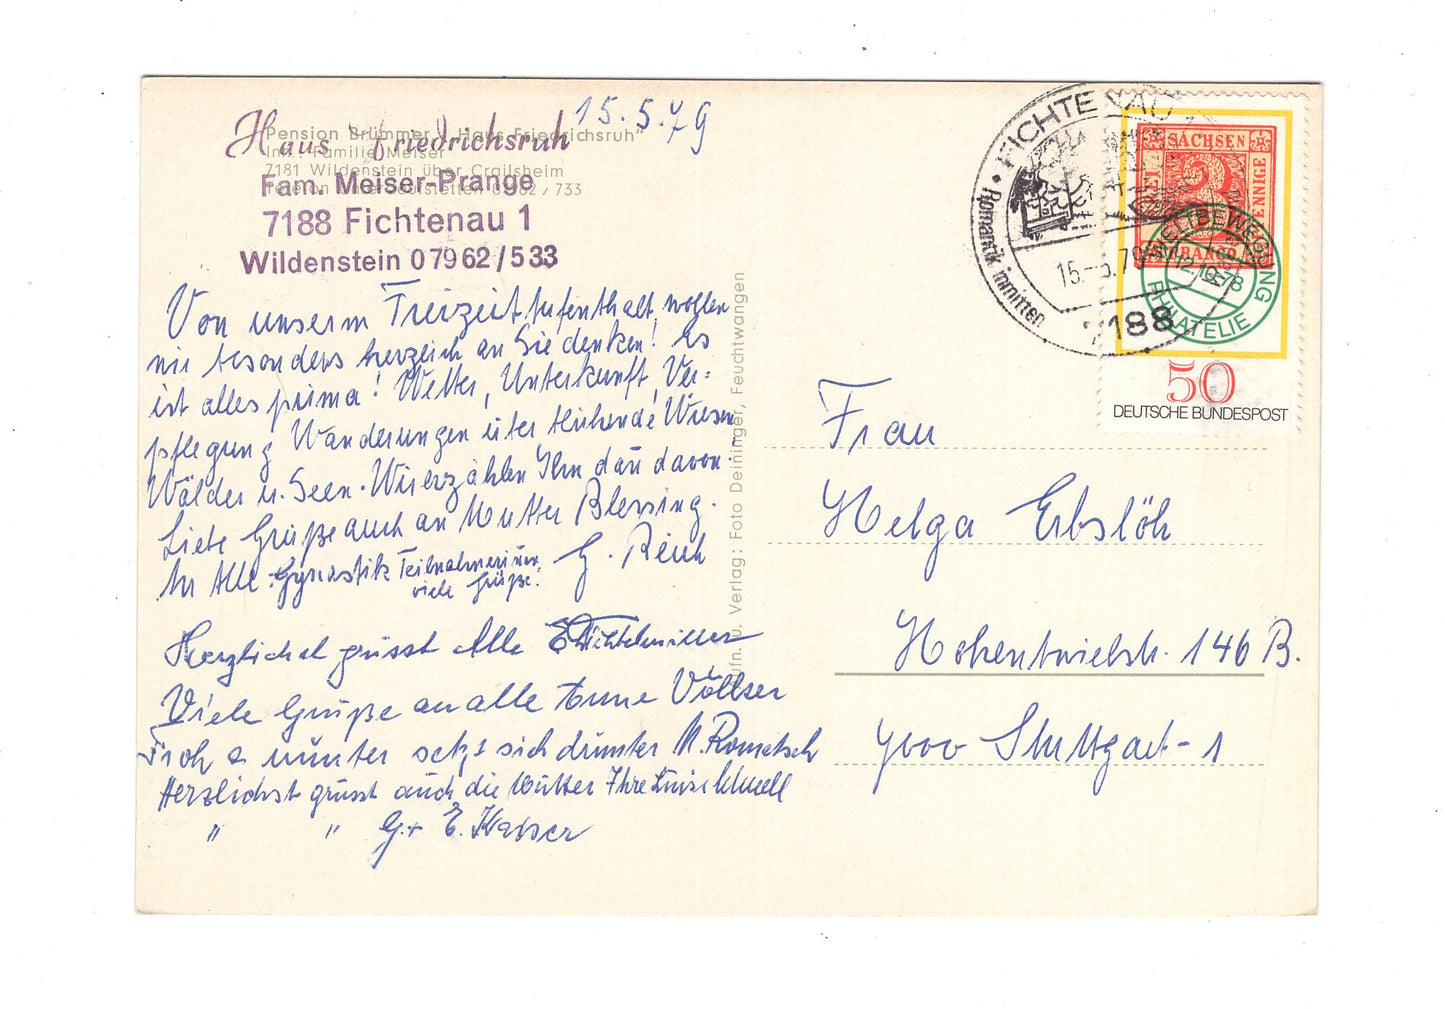 15.5.79
Pension Brümmer "Haus Friedrichsruh"
Inh.: Familie Meiser
7181 Wildenstein über Crailsheim
07962/733
Haus Friedrichsruh
Fam. Meiser-Prange
7188 Fichtenau 1
Wildenstein 07962/533
Von unserm Freizeit Aufenthalt, wollen
wir besonders herzlich an Sie denken! Es
ist alles prima! Wetter, Unterkunft, Ver=
pflegung Wanderungen über blühende Wiesen,
Wälder u. Seen. Wir erzählen Ihn dan davon.
Liebe Grüße auch an Mutter Blessing.
An Alle Gynastik Teilnehmerinnen
viele Grüße. G. Reich
Herzlichst grüsst Alle
Viele Grüße an alle Anne
Froh & munter setzt sich drunter
Herzlichst grüsst auch die Mutter Ihre
" " G. + E. Kaiser
Aufn. u. Verlag: Foto Deininger, Feuchtwangen
FICHTENAU
Romantik inmitten
15.-5.79
7188
SACHSEN
DREI PFENNIGE
3
FRANCO
WELTBEWEGUNG
12.10.78
PHILATELIE
50
DEUTSCHE BUNDESPOST
Frau
Helga Erbslöh
Hohentwielstr. 146 B.
7000 Stuttgart-1